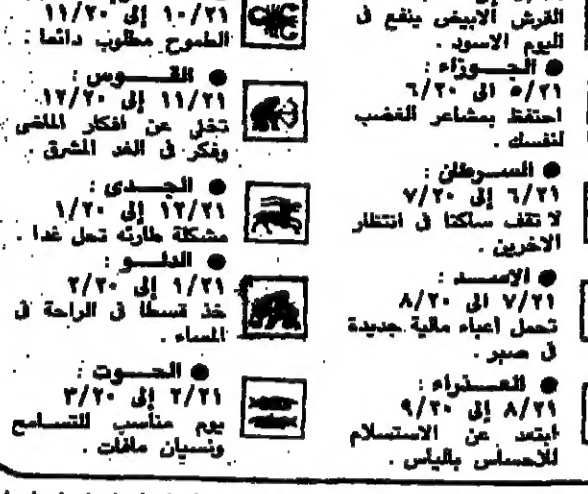 القرش الابيض ينفع فى
اليوم الاسود .
● الجـــوزاء :
٥/٢١ الى ٦/٢٠
احتفظ بمشاعر الغضب
لنفسك .
● الســرطان :
٦/٢١ إلى ٧/٢٠
لا تقف ساكتا فى انتظار
الاخرين .
● الاســـد :
٧/٢١ الى ٨/٢٠
تحمل أعباء مالية جديدة
فى صبر .
● العـــذراء :
٨/٢١ إلى ٩/٢٠
ابتعد عن الاستسلام
للاحساس بالياس .
١٠/٢١ إلى ١١/٢٠
الطموح مطلوب دائما :
● القـــوس :
١١/٢١ إلى ١٢/٢٠
تخل عن افكار الماضى
وفكر فى الغد المشرق .
● الجـــدى :
١٢/٢١ إلى ١/٢٠
مشكلة طارئه تحل غدا .
● الدلـــو :
١/٢١ إلى ٢/٢٠
خذ قسطا فى الراحة فى
المساء .
● الحـــوت :
٢/٢١ إلى ٣/٢٠
يوم مناسب للتسامح
ونسيان مافات .